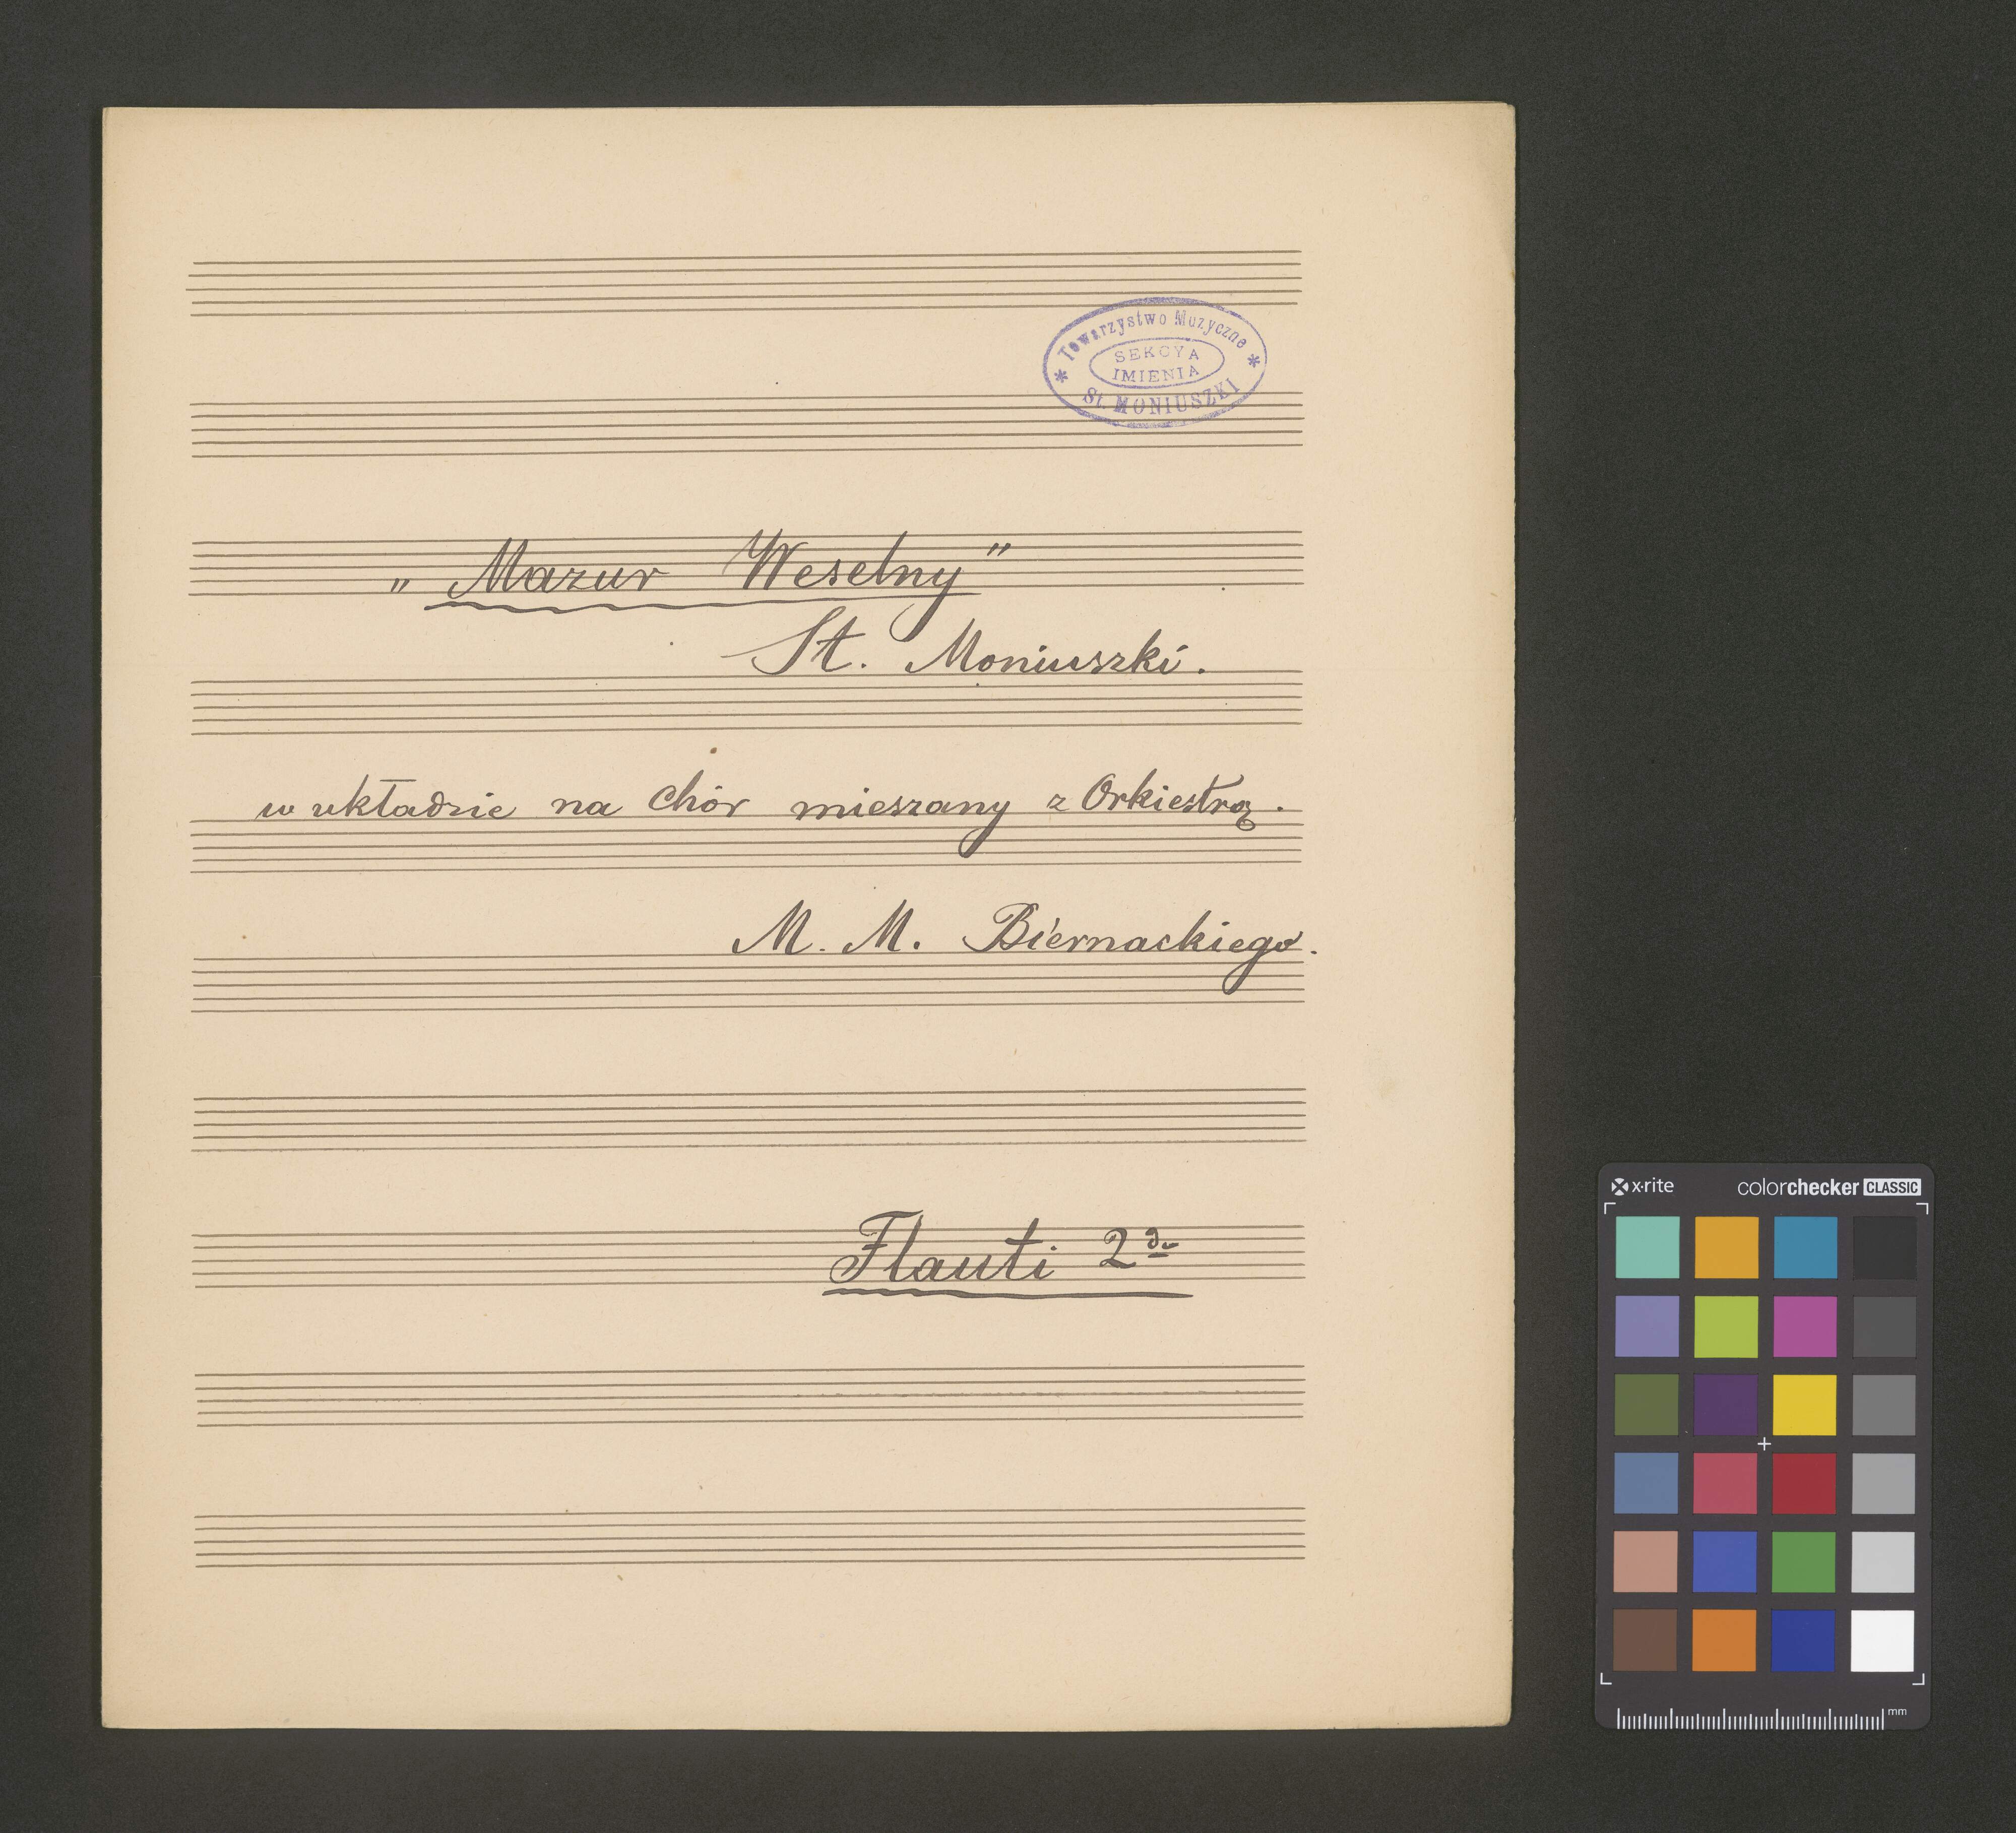 Towarzystwo Muzyczne
SEKCYA
IMIENIA
St. MONIUSZKI
„Mazur Weselny"
St. Moniuszki.
w układzie na chór mieszany z Orkiestrą.
M. M. Biernackiego.
Flauti 2do
x·rite colorchecker CLASSIC
mm